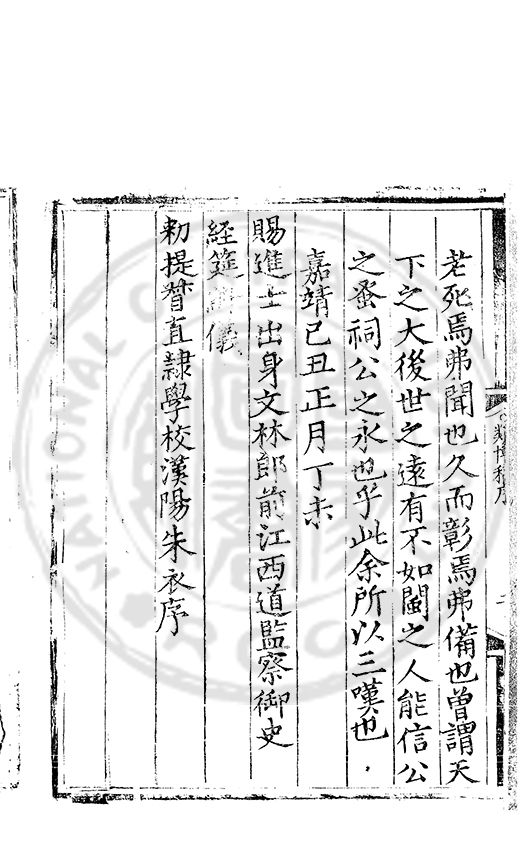 老死焉弗聞也久而彰焉弗備也曾謂天
下之大後世之遠有不如閩之人能信公
之蚤祠公之永也乎此余所以三嘆也
嘉靖己丑正月丁未
賜進士出身文林郎前江西道監察御史
經筵 儀
勑提督直隷學校漢陽朱衣序
類博稿序